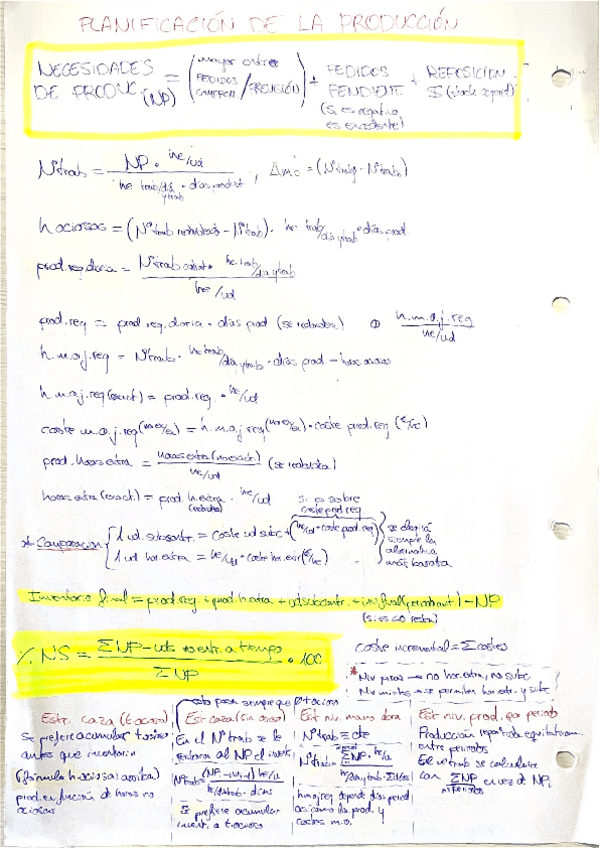 PLANIFICACIÓN DE LA PRODUCCIÓN
NECESIDADES DE PRODUC. (NP) = (mayor entre PEDIDOS COMERCIAL / PREVISIÓN) + PEDIDOS PENDIENT. + REPOSICION SS (stock segurt)
(si es negativo es excedente)
Nº trab = NP · he/ud / he trab/día y trab · días product , Δmo = (Nº trab
h ociosas = (Nº trab redondeado - Nº trab) · he trab/día y trab · días prod
prod. req. diaria = Nº trab · he trab/día y trab / he/ud
prod. req = prod req. diaria · días prod (se redondea) o h.m.o.j. req / he/ud
h.m.o.j. req = Nº trab · he trab/día y trab · días prod - horas ociosas
h.m.o.j. req (exact) = prod. req · he/ud
coste m.o.j. req = h.m.o.j. req · coste prod. req (€/he)
prod. horas extra = horas extra (no exact.) / he/ud (se redondea)
horas extra (exact.) = prod. h. extra (redondea) · he/ud
si es sobre coste prod req
* Comparación
1 ud. subcontr. = coste ud subc + (he/ud · coste prod. req)
1 ud hor. extra = he/ud · coste hor. extr (€/he)
se elegirá siempre la alternativa más barata
Inventario final = prod. req. + prod. h. extra + ud subcontr. + inv. final (period ant) - NP
(si es <0 resta)
% NS = ΣNP - uds no entr. a tiempo / ΣNP · 100
coste incremental = Σ costes
* Niv puros → no hor. extra, no subc
Niv mixtos → se permiten hor. extr. y subc
esto pasa siempre que
Estr. caza (t ocioso)
Se prefiere acumular t ocioso
antes que inventario
(fórmula h ociosas arriba)
prod. en función de horas no
ociosas
Estr caza (sin ocioso)
En el Nº trab se le
restará al NP el invent.
he/día trab · días
Se prefiere acumular
invent. a t ocioso
Est niv. mano obra
Nº trab = cte
Nº trab = ΣNP · he/ud / he/día y trab · Σ días
h m o j req depende días prod
así como la prod. y
costes m.o.
Est niv. prod. por periodo
Producción repartida equitativam.
entre periodos
El nº trab se calculará
con ΣNP / nº periodos en vez de NPi